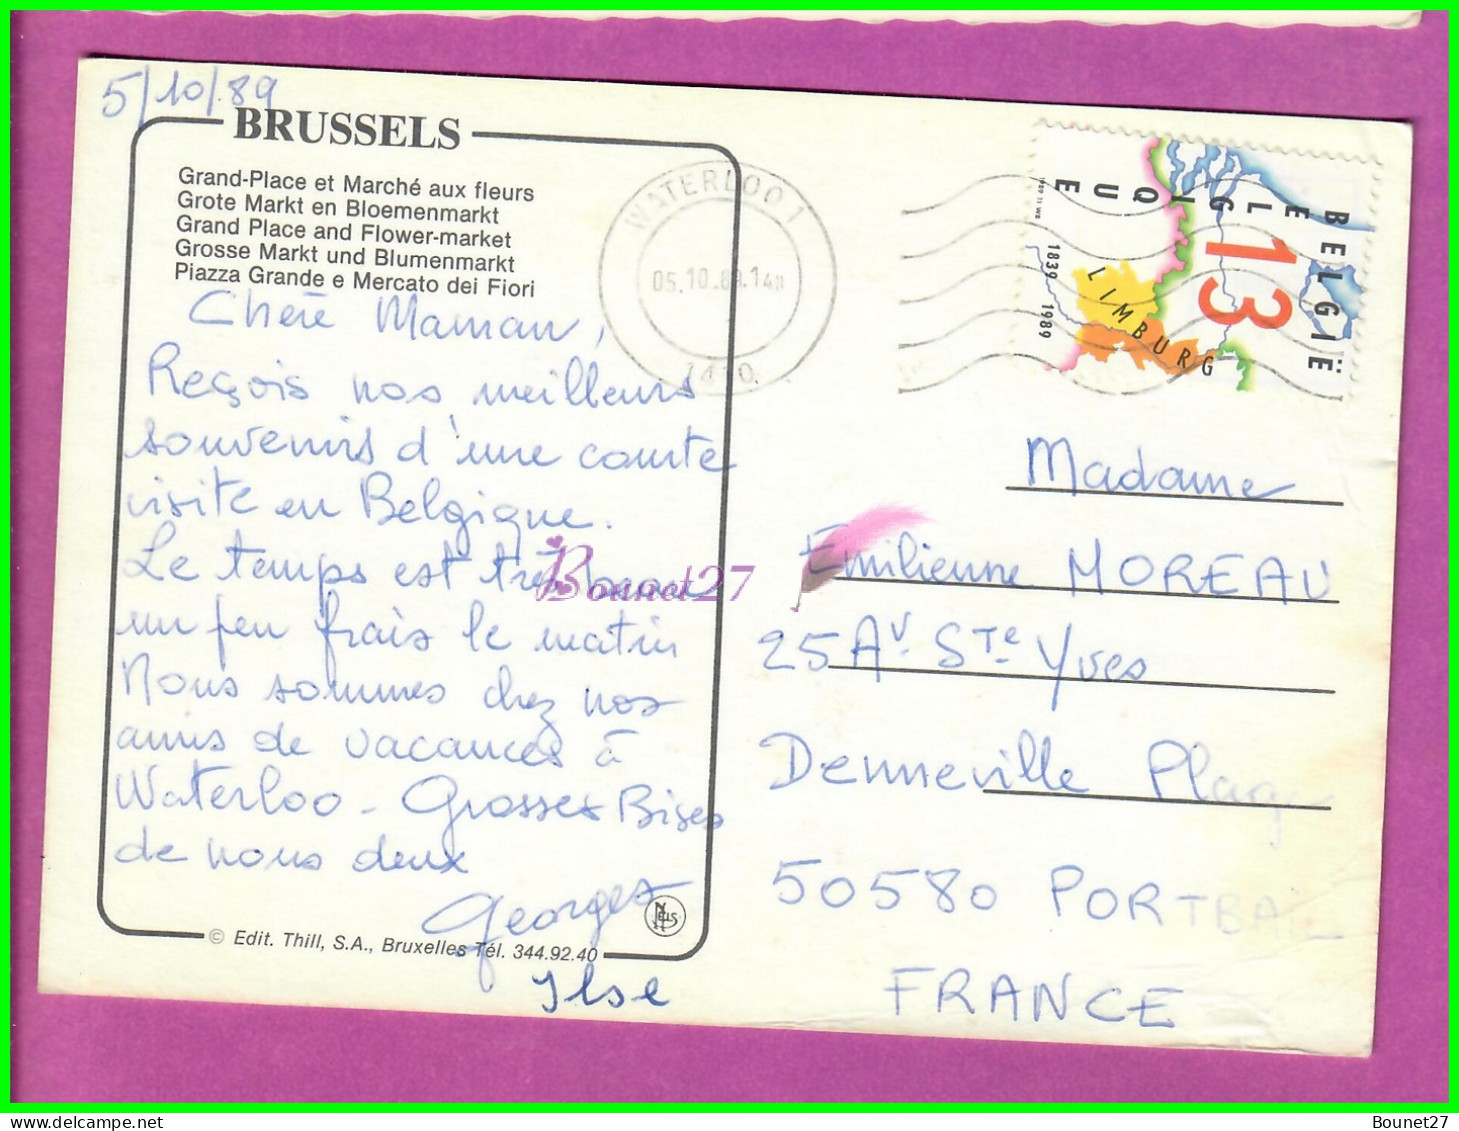 5/10/89
BRUSSELS
Grand-Place et Marché aux fleurs
Grote Markt en Bloemenmarkt
Grand Place and Flower-market
Grosse Markt und Blumenmarkt
Piazza Grande e Mercato dei Fiori
Chère Maman,
Reçois nos meilleurs
souvenirs d'une courte
visite en Belgique.
Le temps est très beau
un peu frais le matin
Nous sommes chez nos
amis de vacances à
Waterloo - Grosses Bises
de nous deux
Georges
Ilse
© Edit. Thill, S.A., Bruxelles Tél. 344.92.40
NELS
WATERLOO 1
05.10.89.14H
1410
BELGIË
BELGIQUE
13
LIMBURG
1839 1989
Madame
Emilienne MOREAU
25 Av Ste Yves
Denneville Plage
50580 PORTBAIL
FRANCE
Bonnet27
Bounet27